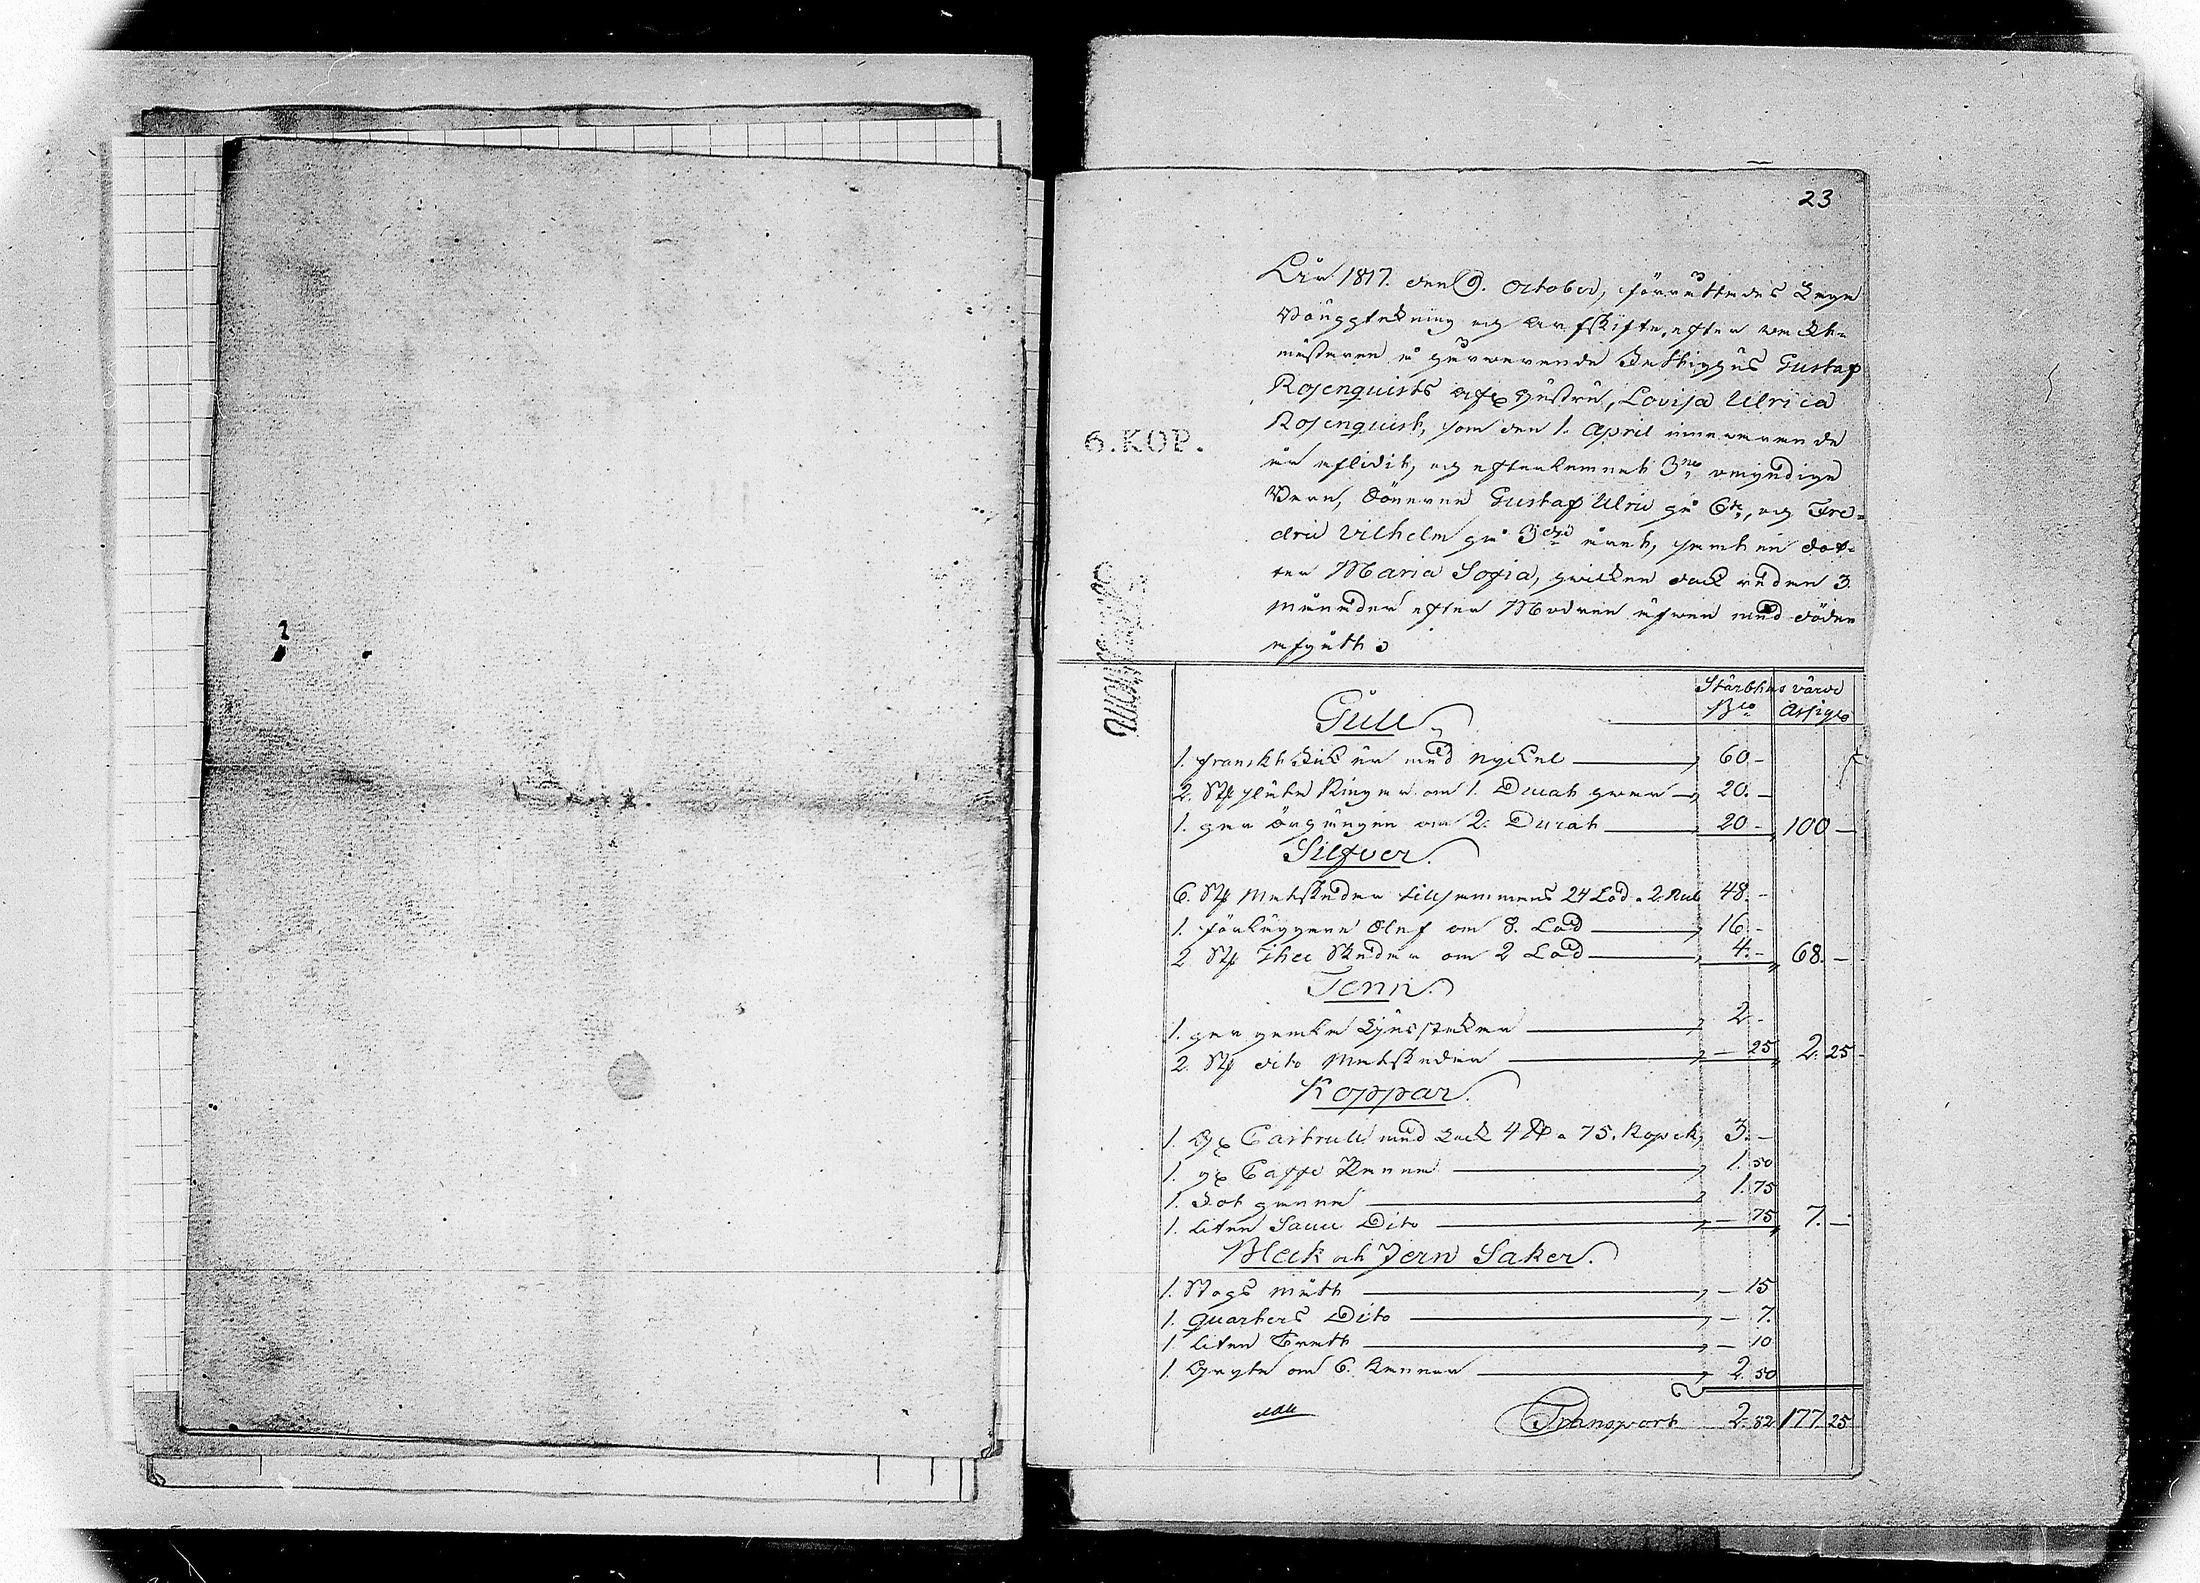 23
År 1817. den 9. October, förrättades Laga
Bouppteckning og Arfskifte, efter wackt-
mästaren i härwarande Gustaf
Rosenquists afl. hustru, Lovisa Ulrica
Rosenquist, som den 1. April innewarande
år aflidit, og efterlemnat 3ne omyndige
Barn, Sönerne Gustaf Ulric på 6te, og Fre-
dric Vilhelm på 3dje året, samt en dot-
ter Maria Sofia, hwilken ock redan 3.
månader efter Modren äfwen med döden
afgått.
6. KOP.
Stärbhus värde
Bco Assigo
Gull
1. franskt fick ur med nyckel 60 -
2. St släta Ringar om 1. Ducat hwar 20. -
1. par örhängen om 2. Ducat 20 - 100 -
Silfver.
6. St Matskedar tillsammans 24 Lod a 2. Rub 48. -
1. förläggare Slef om 8. Lod 16 -
2 St Thee Skedar om 2 Lod 4. - 68. -
Tenn.
1. par gamla Ljusstakar 2 -
2. St dito Matskedar - 25 2. 25
Koppar.
1. Castrull med Lock 4 ℔ a 75. Kopek 3. -
1. Caffe Kanna 1. 50
1. panna 1. 75
1. liten Dito - 75 7. -
Bleck och Jern Saker.
1. Stops mått - 15
1. quarters Dito - 7.
1 liten Tratt - 10
1. Gryta om 6. Kannor 2. 50
Transport 2. 82 177. 25